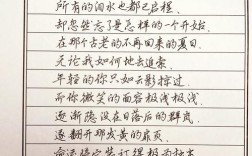 所有的泪水也都已启程
却忽然忘了是怎样的一个开始
在那个古老的不再回来的夏日
无论我如何地去追索
年轻的你只如云影掠过
而你微笑的面容极浅极淡
逐渐隐没在日落后的群岚
遂翻开那发黄的扉页
命运将它装订得极为拙劣